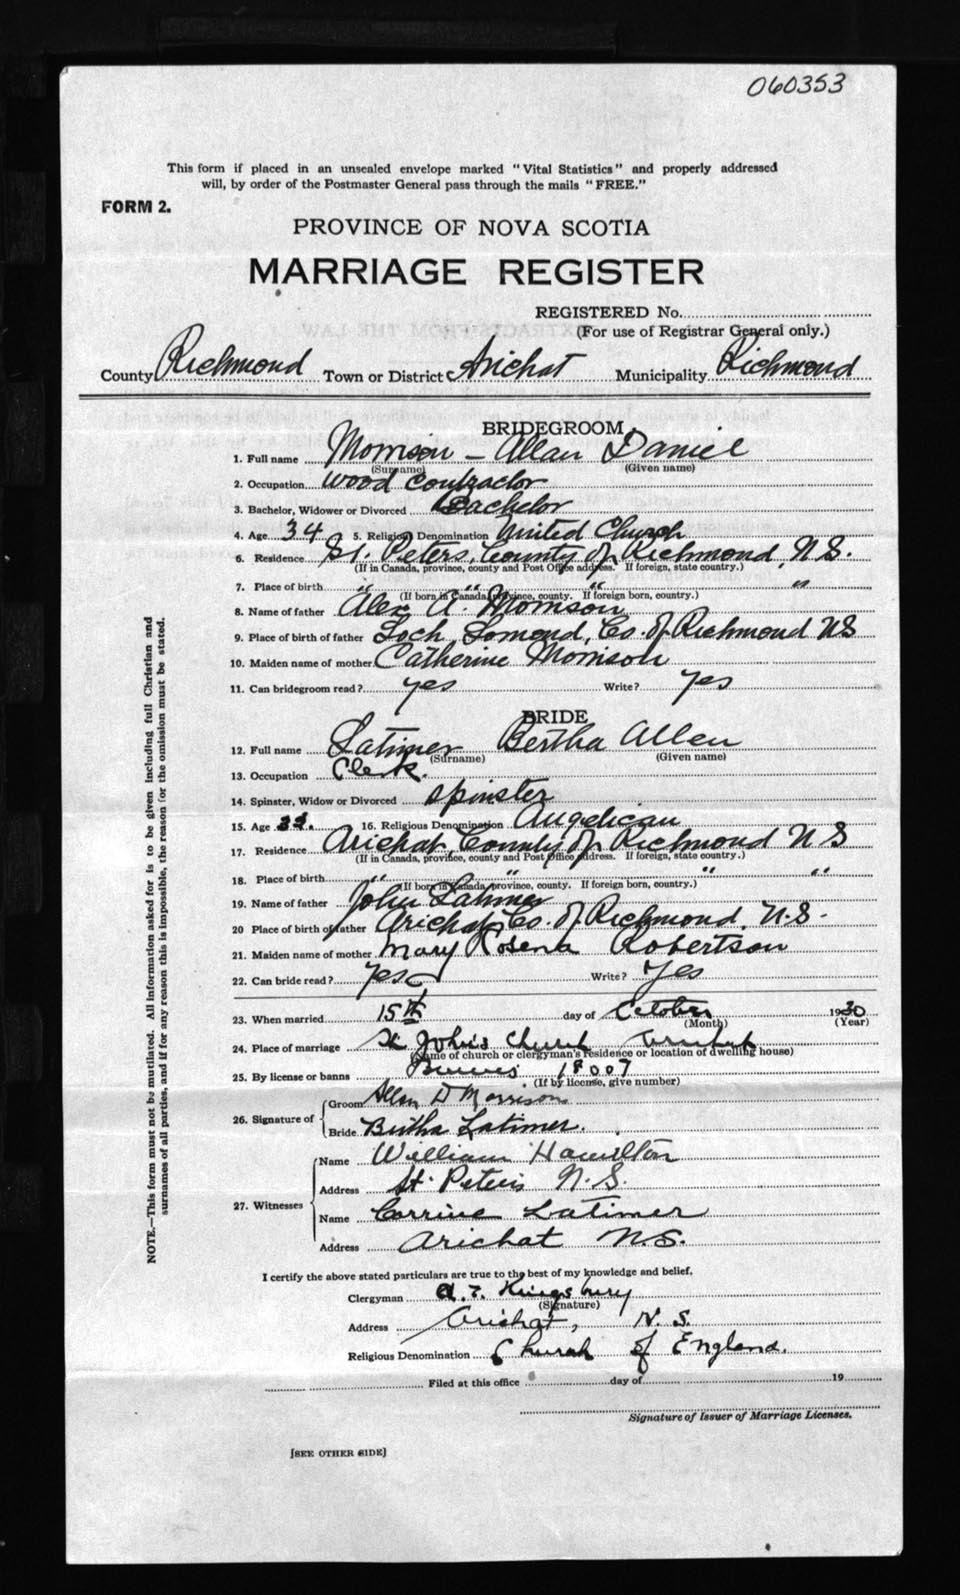 060353
This form if placed in an unsealed envelope marked "Vital Statistics" and properly addressed
will, by order of the Postmaster General pass through the mails "FREE."
FORM 2.
PROVINCE OF NOVA SCOTIA
MARRIAGE REGISTER
REGISTERED No.
(For use of Registrar General only.)
County Richmond Town or District Arichat Municipality Richmond
BRIDEGROOM
1. Full name Morrison - Allan Daniel
(Surname) (Given name)
2. Occupation wood contractor
3. Bachelor, Widower or Divorced Bachelor
4. Age 34 5. Religious Denomination United Church
6. Residence St. Peters, County of Richmond, N.S.
(If in Canada, province, county and Post Office address. If foreign, state country.)
7. Place of birth " " " "
(If born in Canada, province, county. If foreign born, country.)
8. Name of father Alex A. Morrison
9. Place of birth of father Loch Lomond, Co. of Richmond NS
10. Maiden name of mother Catherine Morrison
11. Can bridegroom read? yes Write? yes
BRIDE
12. Full name Latimer Bertha Allen
(Surname) (Given name)
13. Occupation Clerk.
14. Spinster, Widow or Divorced spinster
15. Age 16. Religious Denomination Angelican
17. Residence Arichat, County of Richmond N S
(If in Canada, province, county and Post Office address. If foreign, state country.)
18. Place of birth " " " "
(If born in Canada, province, county. If foreign born, country.)
19. Name of father John Latimer
20 Place of birth of father Arichat Co. of Richmond, N.S.
21. Maiden name of mother Mary Rosena Robertson
22. Can bride read? yes Write? Yes
23. When married 15th day of October 1930
(Month) (Year)
24. Place of marriage St John's Church Arichat
(Name of church or clergyman's residence or location of dwelling house)
25. By license or banns 18007
(If by license, give number)
26. Signature of Groom Allan D Morrison
Bride Bertha Latimer.
27. Witnesses Name William Hamilton
Address St. Peters N.S.
Name Corrine Latimer
Address Arichat N.S.
I certify the above stated particulars are true to the best of my knowledge and belief.
Clergyman A. T. Kingsbury
(Signature)
Address Arichat, N. S.
Religious Denomination Church of England.
Filed at this office day of 19
Signature of Issuer of Marriage Licenses.
[SEE OTHER SIDE]
NOTE.—This form must not be mutilated. All information asked for is to be given including full Christian and
surnames of all parties, and if for any reason this is impossible, the reason for the omission must be stated.